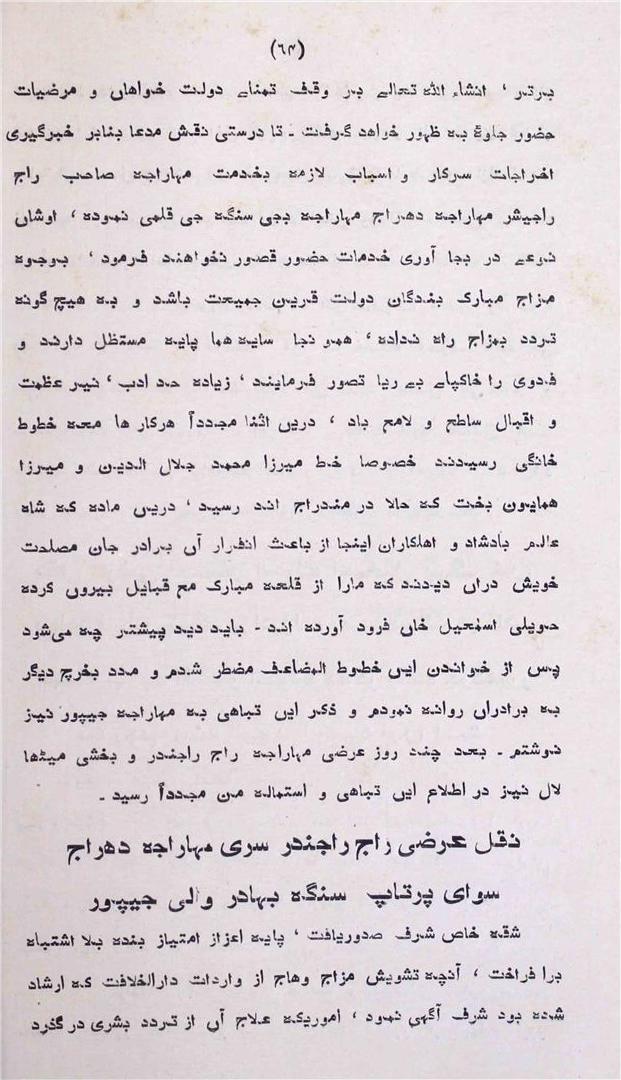 (٦٤)
برتر ' انشاء الله تعالے بر وقف تمناے دولت خواهاں و مرضیات
حضور جلوۀ به ظهور خواهد گرفت ـ تا درستی نقش مدعا بنابر خبرگیری
اخراجات سرکار و اسباب لازمه بخدمت مهاراجه صاحب راج
راجیشر مهاراجه دهراج مهاراجه بجی سنگه جی قلمی نموده ' اوشاں
نوعے در بجا آوری خدمات حضور قصور نخواهند فرمود ' بوجوه
مزاج مبارک بندگان دولت قرین جمیعت باشد و به هیچ گونه
تردد بمزاج راه نداده ' همو نجا سایه هما پایه مستظل دارند و
فدوی را خاکپاے بے ریا تصور فرمایند ' زیاده حد ادب ' نیر عظمت
و اقبال ساطع و لامع باد ' دریں اثنا مجدداً هرکار ها معه خطوط
خانگی رسیدند خصوصا خط میرزا محمد جلال الدین و میرزا
همایون بخت که حالا در مندراج اند رسید ' دریں ماده که شاه
عالم بادشاه و اهلکاران اینجا از باعث انفرار آں برادر جان مصلحت
خویش دراں دیدند که مارا از قلعه مبارک مع قبایل بیروں کرده
حویلی اسمٰعیل خاں فرود آورده اند ـ باید دید پیشتر چه می‌شود
پس از خواندن ایں خطوط المضاعف مضطر شدم و مدد بخرچ دیگر
به برادراں روانه نمودم و ذکر ایں تباهی به مهاراجه جیپور نیز
نوشتم ـ بعد چند روز عرضی مهاراجه راج راجندر و بخشی میٹھا
لال نیز در اطلاع ایں تباهی و استماله من مجدداً رسید ـ
نقل عرضی راج راجندر سری مهاراجه دهراج
سوای پرتاپ سنگه بهادر والی جیپور
شقه خاص شرف صدوریافت ' پایه اعزاز امتیاز بنده بلا اشتباه
برا فراخت ' آنچه تشویش مزاج وهاج از واردات دارالخلافت که ارشاد
شده بود شرف آگهی نمود ' اموریکه علاج آں از تردد بشری در گذرد